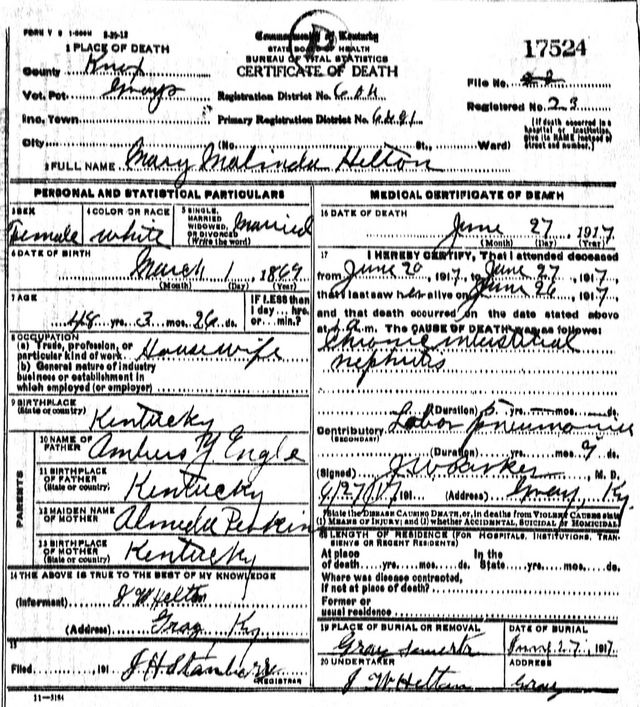 FORM V S 1-500M 8-29-12
Commonwealth of Kentucky
STATE BOARD OF HEALTH
BUREAU OF VITAL STATISTICS
CERTIFICATE OF DEATH
17524
1 PLACE OF DEATH
County Knox
Vot. Pct. Grays
Registration District No. 604
File No.
Ino. Town
Primary Registration District No.
Registered No. 23
(If death occurred in a hospital or institution, give its NAME instead of street and number.)
City (No. St., Ward)
2 FULL NAME Mary Malinda Helton
PERSONAL AND STATISTICAL PARTICULARS
3 SEX Female
4 COLOR OR RACE white
5 SINGLE, MARRIED WIDOWED, OR DIVORCED (Write the word) Married
6 DATE OF BIRTH March 1 1869
(Month) (Day) (Year)
7 AGE 48 yrs. 3 mos. 26 ds.
IF LESS than 1 day... hrs. or... min.?
8 OCCUPATION
(a) Trade, profession, or particular kind of work Housewife
(b) General nature of industry business or establishment in which employed (or employer)
9 BIRTHPLACE (State or country) Kentucky
PARENTS
10 NAME OF FATHER Ambus Y Engle
11 BIRTHPLACE OF FATHER (State or country) Kentucky
12 MAIDEN NAME OF MOTHER Almeda Perkins
13 BIRTHPLACE OF MOTHER (State or country) Kentucky
14 THE ABOVE IS TRUE TO THE BEST OF MY KNOWLEDGE
(Informant) J W Helton
(Address) Gray Ky
15
Filed 191 J. H. REGISTRAR
11-3184
MEDICAL CERTIFICATE OF DEATH
16 DATE OF DEATH
June 27, 1917
(Month) (Day) (Year)
17 I HEREBY CERTIFY, That I attended deceased
from June 20, 1917, to June 27, 1917,
that I last saw her alive on June 26, 1917,
and that death occurred on the date stated above
at m. The CAUSE OF DEATH was as follows:
Chronic interstitial
nephritis
(Duration) 5 yrs. mos. ds.
Contributory (SECONDARY) Labor pneumonia
(Duration) yrs. mos. 9 ds.
(Signed) M. D.
6/27/17, 191 (Address) Gray, Ky.
*State the DISEASE CAUSING DEATH, or, in deaths from VIOLENT CAUSES state (1) MEANS OF INJURY; and (2) whether ACCIDENTAL, SUICIDAL or HOMICIDAL
18 LENGTH OF RESIDENCE (FOR HOSPITALS, INSTITUTIONS, TRANSIENTS OR RECENT RESIDENTS)
At place of death yrs. mos. ds. In the State yrs. mos. ds.
Where was disease contracted, if not at place of death?
Former or usual residence
19 PLACE OF BURIAL OR REMOVAL
Gray
DATE OF BURIAL
June 27, 1917
20 UNDERTAKER
J W Helton
ADDRESS
Gray